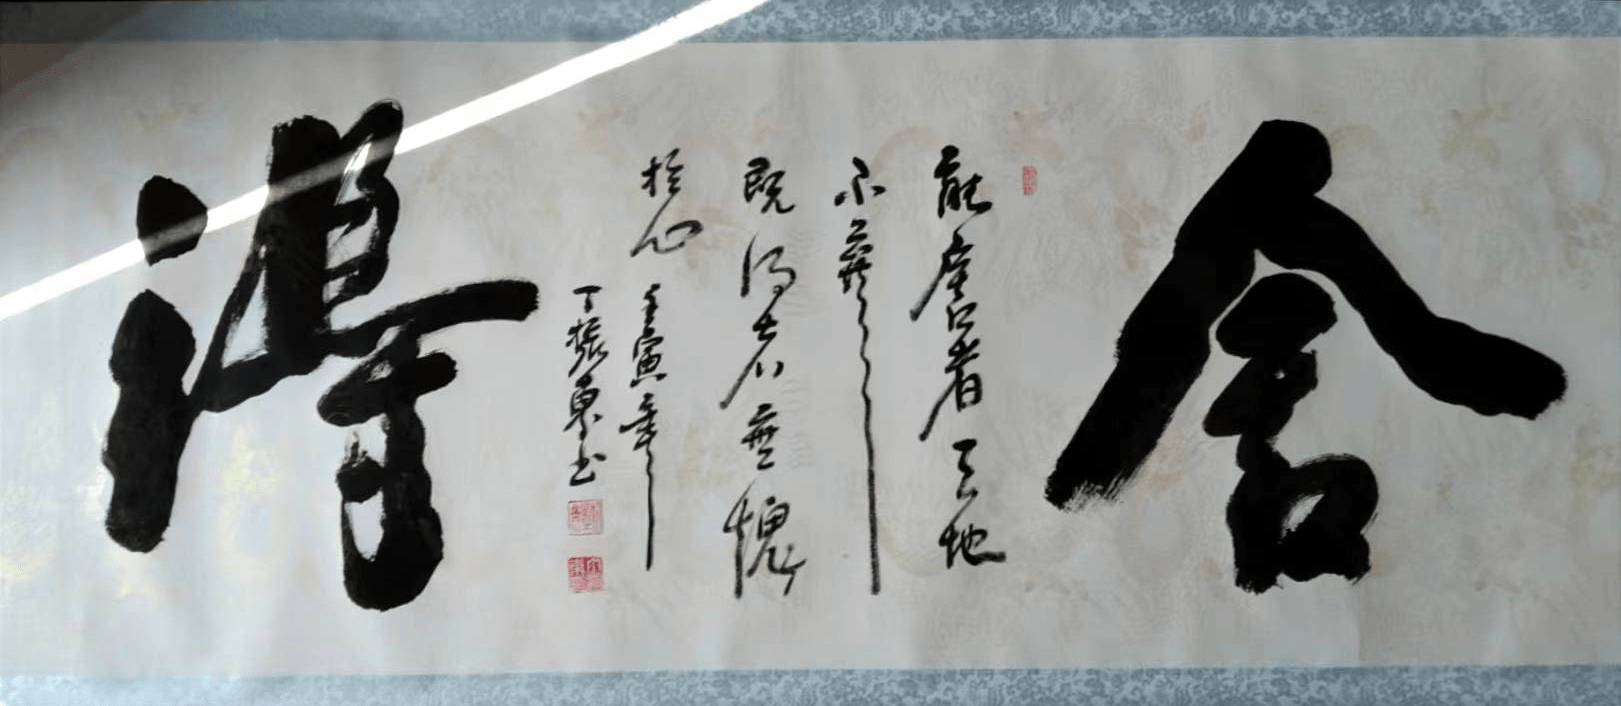 舍
能舍者天地
不棄
既得者無愧
於心 壬寅年
丁振東书
得